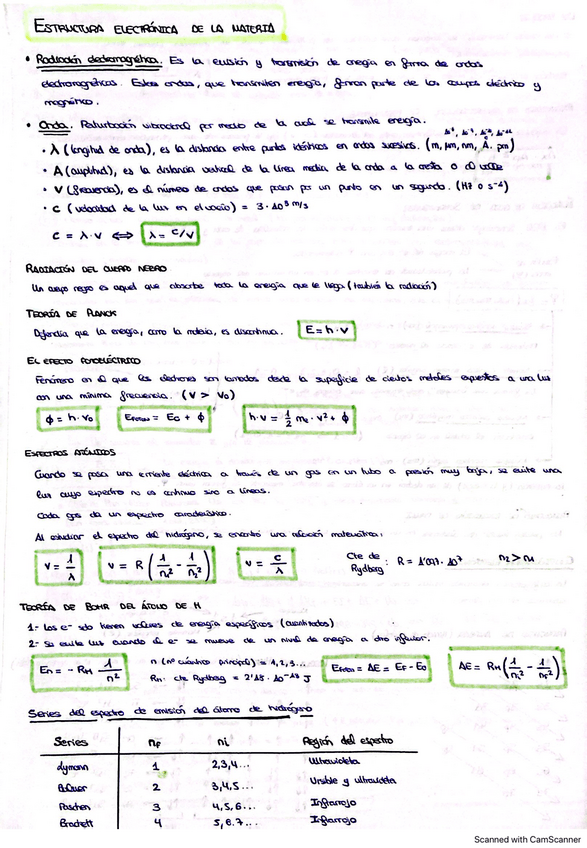 ESTRUCTURA ELECTRÓNICA DE LA MATERIA
• Radiación electromagnética. Es la emisión y transmisión de energía en forma de ondas
electromagnéticas. Estas ondas, que transmiten energía, forman parte de los campos eléctrico y
magnético.
• Onda. Perturbación vibracional por medio de la cual se transmite energía.
• λ (longitud de onda), es la distancia entre puntos idénticos en ondas sucesivas. (m, μm, nm, Å, pm)
• A (amplitud), es la distancia vertical de la línea media de la onda a la cresta o al valle
• ν (frecuencia), es el número de ondas que pasan por un punto en un segundo. (Hz o s⁻¹)
• c (velocidad de la luz en el vacío) = 3·10⁸ m/s
c = λ·ν ⟺ λ = c/ν
RADIACIÓN DEL CUERPO NEGRO
Un cuerpo negro es aquel que absorbe toda la energía que le llega (también la radiación)
TEORÍA DE PLANCK
Defendía que la energía, como la materia, es discontinua. E = h·ν
EL EFECTO FOTOELÉCTRICO
Fenómeno en el que los electrones son lanzados desde la superficie de ciertos metales expuestos a una luz
con una mínima frecuencia. (ν > ν₀)
ϕ = h·ν₀ Efotón = Ec + ϕ h·ν = 1/2 me·v² + ϕ
ESPECTROS ATÓMICOS
Cuando se pasa una corriente eléctrica a través de un gas en un tubo a presión muy baja, se emite una
luz cuyo espectro no es continuo sino a líneas.
Cada gas da un espectro característico.
Al estudiar el espectro del hidrógeno, se encontró una relación matemática:
ν = 1/λ ν = R (1/n₁² - 1/n₂²) ν = c/λ Cte de Rydberg : R = 1'097·10⁷ n₂ > n₁
TEORÍA DE BOHR DEL ÁTOMO DE H
1.- Los e⁻ sólo tienen valores de energía específicos (cuantizados)
2.- Se emite luz cuando el e⁻ se mueve de un nivel de energía a otro inferior.
En = - RH 1/n² n (nº cuántico principal) = 1, 2, 3... Efotón = ΔE = EF - E0 ΔE = RH (1/ni² - 1/nf²)
RH: cte Rydberg = 2'18·10⁻¹⁸ J
Series del espectro de emisión del átomo de hidrógeno
Series nf ni Región del espectro
Lymann 1 2,3,4... Ultravioleta
Balmer 2 3,4,5... Visible y ultravioleta
Paschen 3 4,5,6... Infrarrojo
Brackett 4 5,6,7... Infrarrojo
Scanned with CamScanner